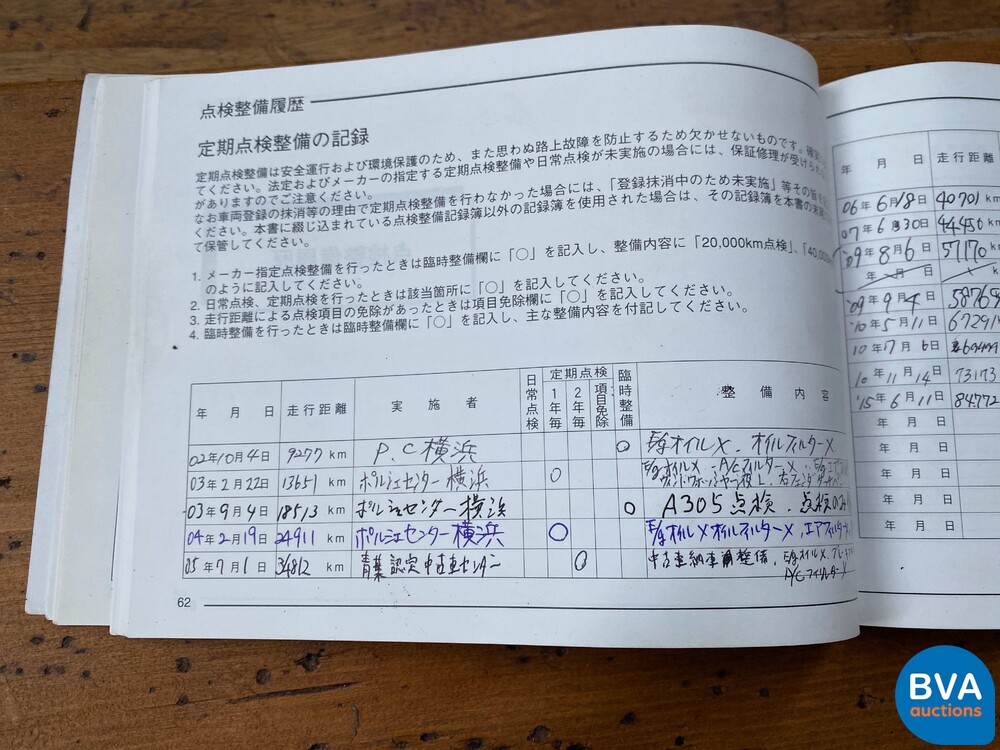 点検整備履歴
定期点検整備の記録
定期点検整備は安全運行および環境保護のため、また思わぬ路上故障を防止するため欠かせないものです。確実に
てください。法定およびメーカーの指定する定期点検整備や日常点検が未実施の場合には、保証修理が受けられな
がありますのでご注意ください。
なお車両登録の抹消等の理由で定期点検整備を行わなかった場合には、「登録抹消中のため未実施」等その旨を
ください。本書に綴じ込まれている点検整備記録簿以外の記録簿を使用された場合は、その記録簿を本書の末尾
て保管してください。
1. メーカー指定点検整備を行ったときは臨時整備欄に「○」を記入し、整備内容に「20,000km点検」、「40,000k
のように記入してください。
2. 日常点検、定期点検を行ったときは該当箇所に「○」を記入してください。
3. 走行距離による点検項目の免除があったときは項目免除欄に「○」を記入してください。
4. 臨時整備を行ったときは臨時整備欄に「○」を記入し、主な整備内容を付記してください。
年 月 日 走行距離 実施者 日常点検 定期点検 1年毎 2年毎 項目免除 臨時整備 整備内容
02年10月4日 9277 km P.C横浜 ○ E/gオイルX.オイルフィルターX
03年2月22日 13651 km ポルシェセンター横浜 ○ E/gオイルX A/CフィルターX
03年9月4日 18513 km ポルシェセンター横浜 ○ A305点検.点検
04年2月19日 24911 km ポルシェセンター横浜 ○ E/gオイルXオイルフィルターX.エアフィルター
05年7月1日 34812 km 青葉認定中古車センター ○ 中古車納車前整備.E/gオイルX.
A/CフィルターX
62
年 月 日 走行距離
06年6月18日 40701 km
07年6月30日 44450 km
'09年8月6日 57170 km
年 月 日 km
'09年9月4日 58769
'10年5月11日 67291
10年7月6日
10年11月14日 73173
'15年6月11日 84772
年 月 日
年 月 日
年 月 日
年 月 日
年 月 日
BVA
auctions